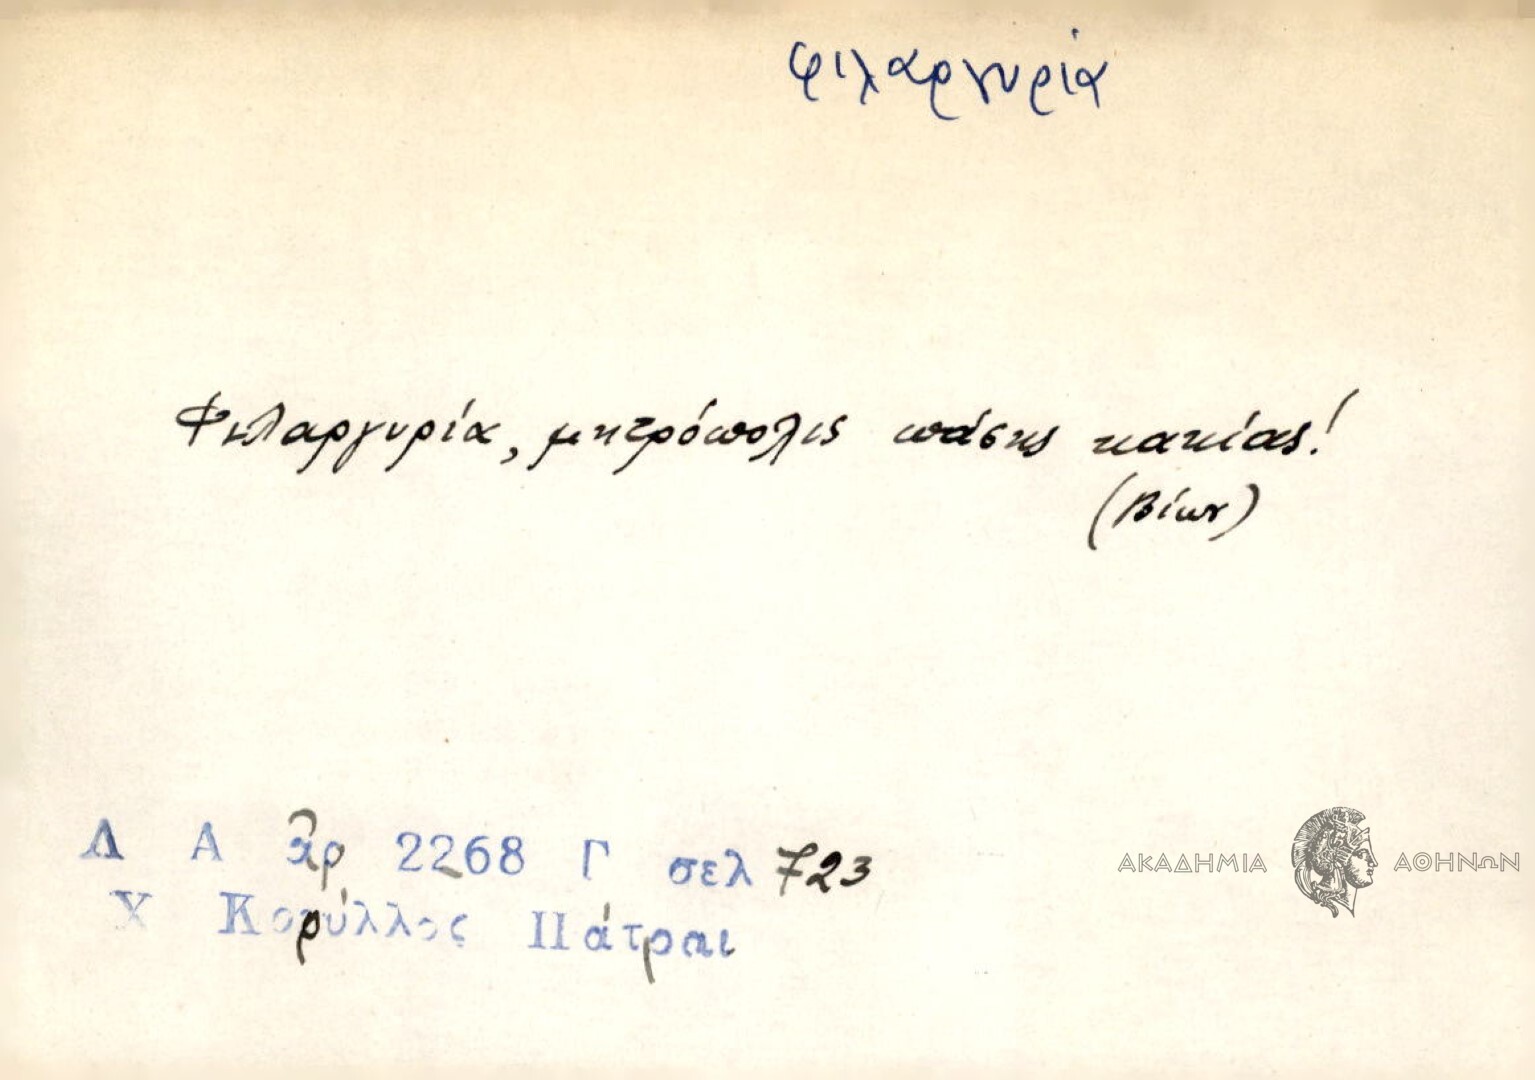 φιλαργυρία
Φιλαργυρία, μητρόπολις πάσης κακίας!
(Βίων)
Λ Α ἀρ 2268 Γ σελ 723
Χ Κορύλλος Πάτραι
ΑΚΑΔΗΜΙΑ ΑΘΗΝΩΝ